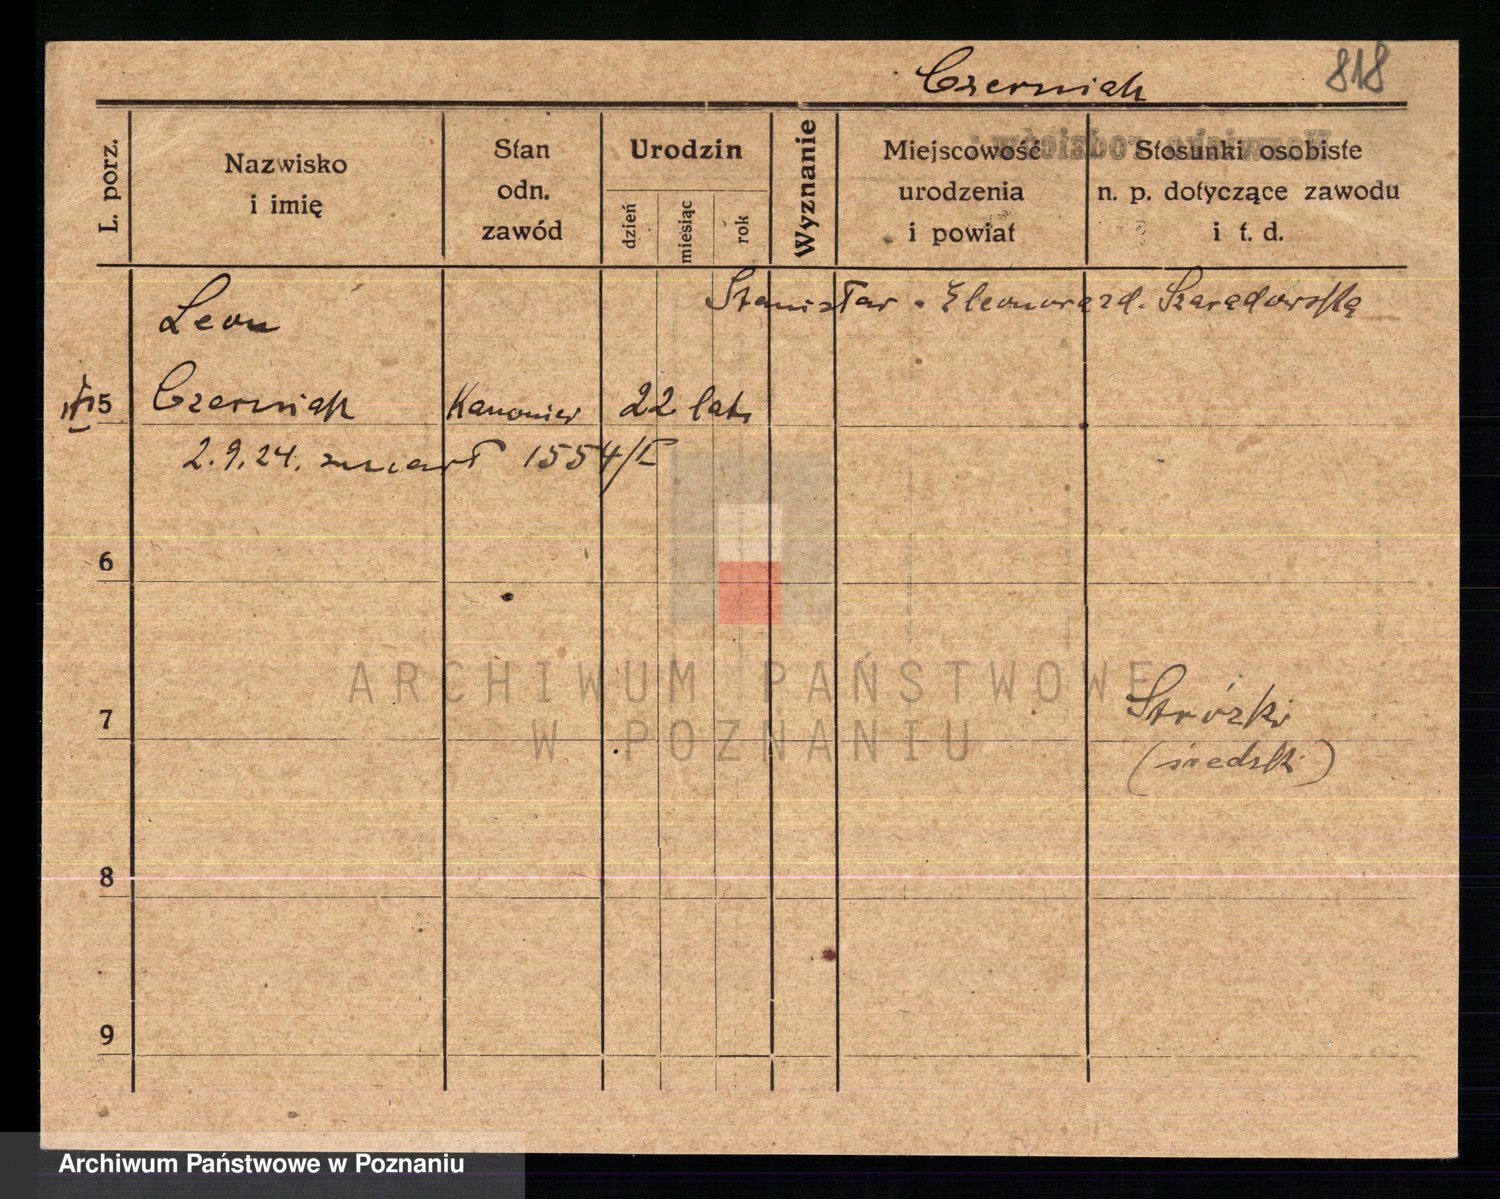 Czerniak 818
L. porz.
Nazwisko
i imię
Stan
odn.
zawód
Urodzin
dzień
miesiąc
rok
Wyznanie
Miejscowość
urodzenia
i powiat
Stosunki osobiste
n. p. dotyczące zawodu
i t. d.
Nazwisko rodziców:
Leon
Stanisław Eleonora zd. Szarądowską
5 Czerniak Kanonier 22 lat
2.9.24. zmarł 1554/
6
7
Strózki
(średzki)
8
9
ARCHIWUM PAŃSTWOWE
W POZNANIU
Archiwum Państwowe w Poznaniu